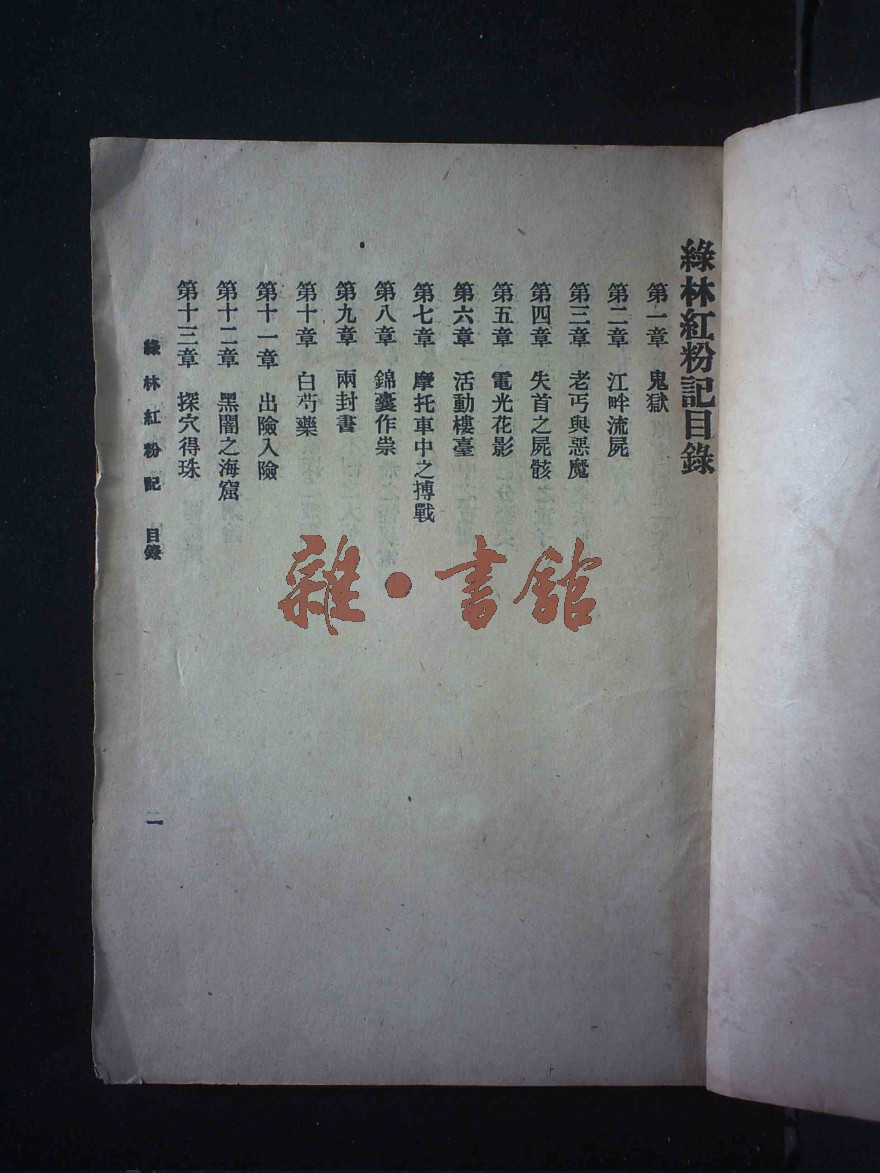 綠林紅粉記目錄
第一章 鬼獄
第二章 江畔流屍
第三章 老丐與惡魔
第四章 失首之屍骸
第五章 電光花影
第六章 活動樓臺
第七章 摩托車中之搏戰
第八章 錦囊作祟
第九章 兩封書
第十章 白芍藥
第十一章 出險入險
第十二章 黑闇之海窟
第十三章 探穴得珠
綠林紅粉記 目錄
雜·書館